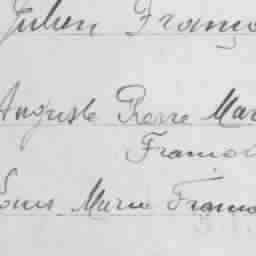 Julien Franço
Auguste Pierre Mar
Françoi
Louis Marie Franço